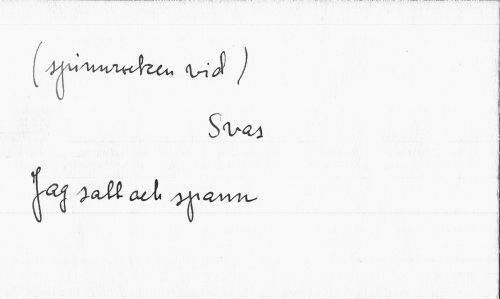 (spinnrocken vid)
Svar
Jag satt och spann